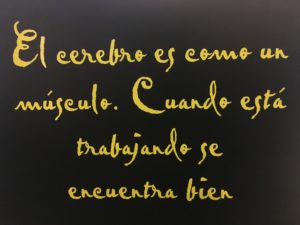 El cerebro es como un
músculo. Cuando está
trabajando se
encuentra bien